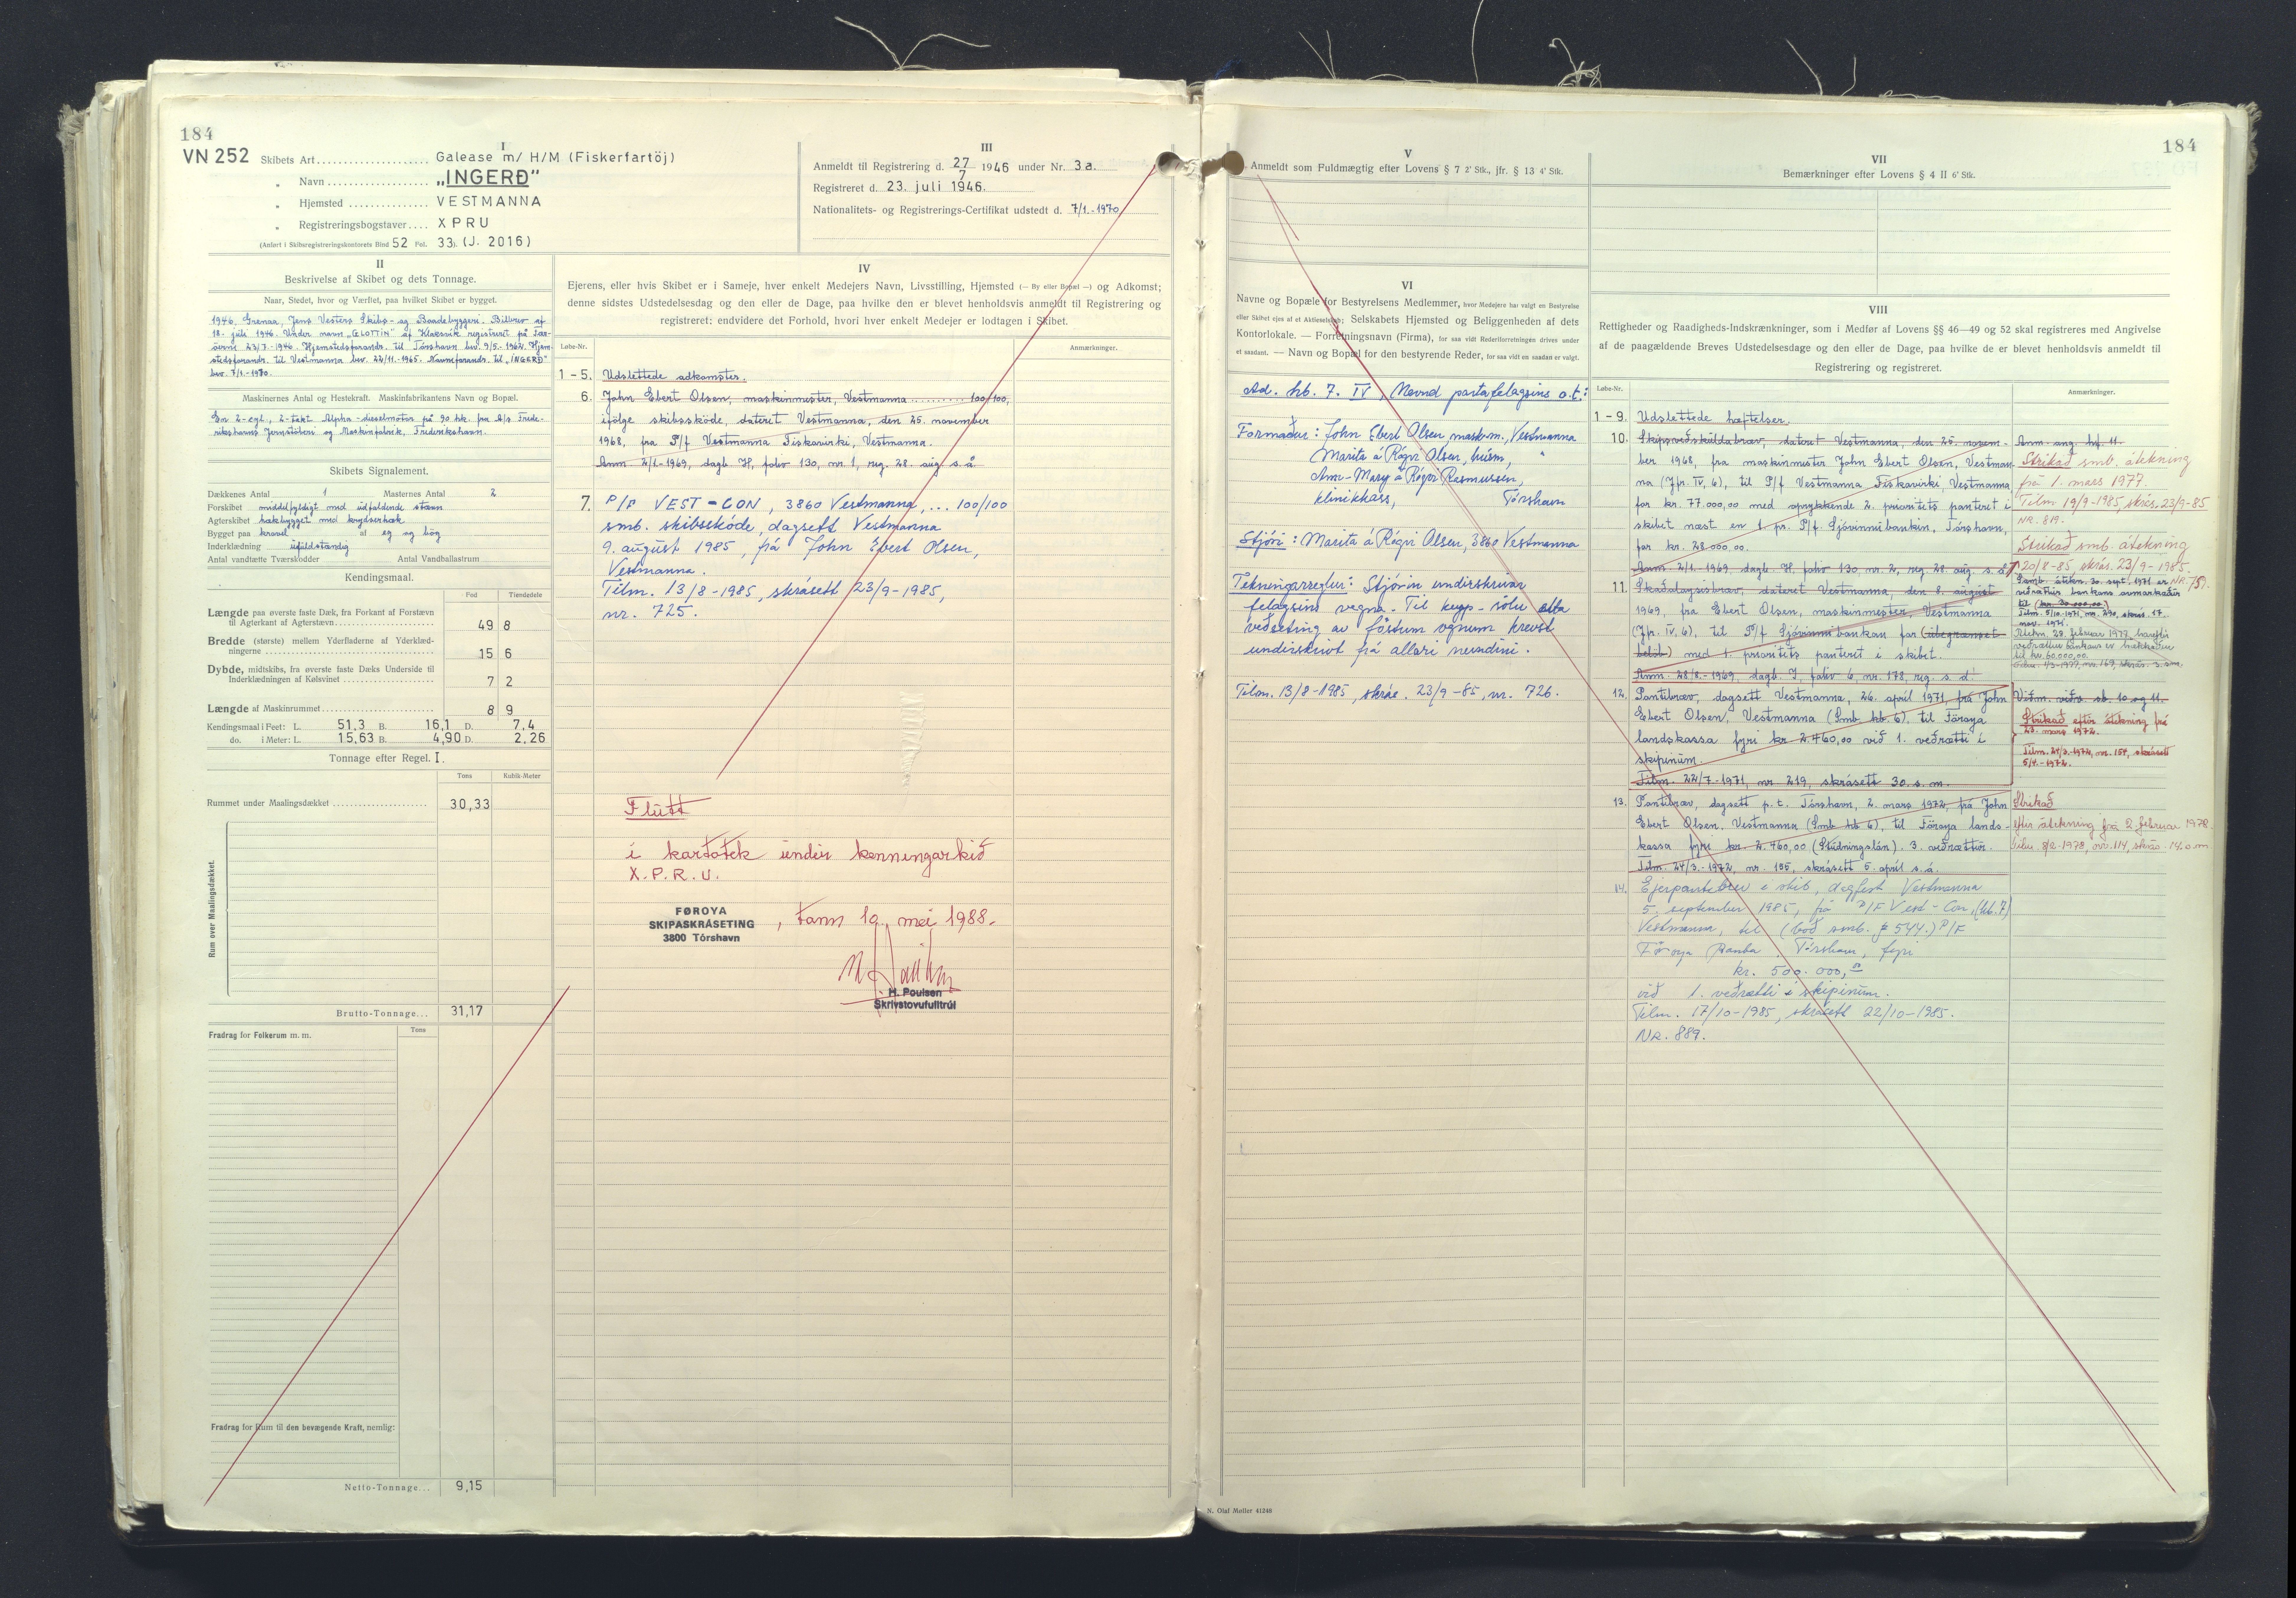 184
VN 252
I
Skibets Art.................... Galease m/ H/M (Fiskerfartöj)
„ Navn.................. „INGERÐ“
„ Hjemsted.............. VESTMANNA
„ Registreringsbogstaver.... XPRU
(Anført i Skibsregistreringskontorets Bind 52 Fol. 33). (J. 2016)
III
Anmeldt til Registrering d. 27/7 1946 under Nr. 3a.
Registreret d. 23. juli 1946.
Nationalitets- og Registrerings-Certifikat udstedt d. 7/1.-1970
II
Beskrivelse af Skibet og dets Tonnage.
Naar, Stedet, hvor og Værftet, paa hvilket Skibet er bygget.
1946. Grenaa, Jens Vesters Skibs- og Baadebyggeri. Bilbrev af
18. juli 1946. Under navn „GLOTTIN“ af Klaksvik registreret på Fær-
öerne 23/7.-1946. Hjemstedsforandr. til Tórshavn bev. 9/5-1962. Hjem-
stedsforandr. til Vestmanna bev. 22/11.-1965. Navneforandr. til „INGERÐ“
bev. 7/1.-1970.
Maskinernes Antal og Hestekraft. Maskinfabrikantens Navn og Bopæl.
En 2-cyl., 2-takt Alpha-dieselmotor på 90 hk. fra A/s Frede-
rikshavns Jernstöberi og Maskinfabrik, Frederikshavn.
Skibets Signalement.
Dækkenes Antal 1 Masternes Antal 2
Forskibet middelfyldigt med udfaldende stævn
Agterskibet hækbygget med krydserhæk
Bygget paa kravel af eg og bög
Inderklædning ufuldstændig
Antal vandtætte Tværskodder Antal Vandballastrum
Kendingsmaal.
Fod Tiendedele
Længde paa øverste faste Dæk, fra Forkant af Forstævn
til Agterkant af Agterstævn 49 8
Bredde (største) mellem Yderfladerne af Yderklæd-
ningerne 15 6
Dybde, midtskibs, fra øverste faste Dæks Underside til
Inderklædningen af Kølsvinet 7 2
Længde af Maskinrummet 8 9
Kendingsmaal i Feet: L. 51,3 B. 16,1 D. 7,4
do. i Meter: L. 15,63 B. 4,90 D. 2,26
Tonnage efter Regel. I.
Tons Kubik-Meter
Rummet under Maalingsdækket 30,33
Rum over Maalingsdækket.
Brutto-Tonnage... 31,17
Fradrag for Folkerum m. m. Tons
Fradrag for Rum til den bevægende Kraft, nemlig:
Netto-Tonnage... 9,15
IV
Ejerens, eller hvis Skibet er i Sameje, hver enkelt Medejers Navn, Livsstilling, Hjemsted (— By eller Bopæl —) og Adkomst;
denne sidstes Udstedelsesdag og den eller de Dage, paa hvilke den er blevet henholdsvis anmeldt til Registrering og
registreret; endvidere det Forhold, hvori hver enkelt Medejer er lodtagen i Skibet.
Løbe-Nr. Anmærkninger.
1-5. Udslettede adkomster.
6. John Ebert Olsen, maskinmester, Vestmanna .......... 100/100,
ifölge skibsskøde, dateret Vestmanna, den 25. november
1968, fra P/f Vestmanna Fiskavirki, Vestmanna.
Anm. 2/1-1969, dagb. H, folio 130, nr. 1, reg. 28. aug. s. å.
7. P/F VEST-CON, 3860 Vestmanna, ... 100/100
smb. skibsskóde, dagsett Vestmanna
9. august 1985, frá John Ebert Olsen,
Vestmanna.
Tilm. 13/8-1985, skrásett 23/9-1985,
nr. 725.
Flutt
í kartotek undir kenningarkið
X.P.R.U.
FØROYA
SKIPASKRÁSETING
3800 Tórshavn
, tann 10. mei 1988.
H. Poulsen
Skrivstovufulltrúi
184
V
Anmeldt som Fuldmægtig efter Lovens § 7 2' Stk., jfr. § 13 4' Stk.
VI
Navne og Bopæle for Bestyrelsens Medlemmer, hvor Medejere har valgt en Bestyrelse
eller Skibet ejes af et Aktieselskab; Selskabets Hjemsted og Beliggenheden af dets
Kontorlokale. — Forretningsnavn (Firma), for saa vidt Rederiforretningen drives under
et saadant. — Navn og Bopæl for den bestyrende Reder, for saa vidt en saadan er valgt.
Ad. hb. 7. IV, Nevnd partafelagsins o.t.:
Formaður: John Ebert Olsen, maskm., Vestmanna
Marita á Rógvi Olsen, húsm, "
Ann-Mary á Rógvi Rasmussen,
klinikkass, Tórshavn
Stjóri: Marita á Rógvi Olsen, 3860 Vestmanna
Tekningarreglur: Stjórin undirskrivar
felagsins vegna. Til keyp- sølu ella
veðseting av föstum ognum krevst
underskrivt frá allari nevndini.
Tilm. 13/8-1985, skrás. 23/9-85, nr. 726.
VII
Bemærkninger efter Lovens § 4 II 6' Stk.
VIII
Rettigheder og Raadigheds-Indskrænkninger, som i Medfør af Lovens §§ 46—49 og 52 skal registreres med Angivelse
af de paagældende Breves Udstedelsesdage og den eller de Dage, paa hvilke de er blevet henholdsvis anmeldt til
Registrering og registreret.
Løbe-Nr. Anmærkninger.
1-9. Udslettede hæftelser.
10. Skipsveðskuldabræv, dateret Vestmanna, den 25. novem-
ber 1968, fra maskinmester John Ebert Olsen, Vestman-
na (Jfr. IV, 6), til P/f Vestmanna Fiskavirki, Vestmanna
for kr. 77.000,00 med oprykkende 2. prioritets panteret i
skibet næst en 1. pr. P/f. Sjóvinnubankin, Tórshavn,
for kr. 28.000,00.
Anm. 2/1-1969, dagb. H, folio 130, nr. 2, reg. 28. aug. s. å.
Anm. ang. hf. 11.
Strikað smb. átekning
frá 1. mars 1977.
Tilm. 19/9-1985, skrás. 23/9-85
NR. 819.
11. Skaðaloysisbræv, dateret Vestmanna, den 8. august
1969, fra Ebert Olsen, maskinmester, Vestmanna
(Jfr. IV, 6), til P/f Sjóvinnubankan for (ubegrænset
beløb) med 1. prioritets panteret i skibet.
Anm. 28/8.-1969, dagb. I, folio 6, nr. 178, reg. s. d.
Strikað smb. átekning
20/8-85 skrás. 23/9-1985.
NR. 751.
Samb. átekn. 30. sept. 1971 er
veðrættur bankans avmarkaður
til (kr. 30.000,00)
Tilm. 5/10.-1971, nr. 290, skrás. 17.
nov. 1971.
Átekn. 28. februar 1977, hareftir
veðrættur bankans er hækkaður
til kr. 60.000,00.
Tilm. 1/3-1977, nr. 169, skrás. 3. s.m.
12. Pantibræv, dagsett Vestmanna, 26. apríl 1971, frá John
Ebert Olsen, Vestmanna (Smb. hb. 6). til Föroya
landskassa fyri kr. 2.460,00 við 1. veðrætti í
skipinum.
Tilm. 22/7.-1971, nr. 219, skrásett 30. s. m.
Viðm. viðv. sb. 10 og 11.
Strikað eftir átekning frá
23. mars 1972.
Tilm. 24/3.-1972, nr. 154, skrásett
5/4.-1972.
13. Pantibræv, dagsett p. t. Tórshavn, 2. mars 1972, frá John
Ebert Olsen, Vestmanna (Smb. hb 6), til Föroya lands-
kassa fyri kr. 2.460,00 (Studningslán). 3. veðrættur.
Tilm. 24/3.-1972, nr. 155, skrásett 5. apríl s. á.
Strikað
eftir átekning frá 2. februar 1978.
Tilm. 8/2-1978, nr. 114, skrás. 14. s.m
14. Ejerpantebrev í skib, dagfest Vestmanna
5. september 1985, frá P/F Vest-Con, (hb. 7)
Vestmanna, til (boð smb. § 544.) P/F
Föroya Banka, Tórshavn, fyri
kr. 500.000,
við 1. veðrætti í skipinum.
Tilm. 17/10-1985, skrásett 22/10-1985.
NR. 889.
N. Olaf Møller 41248